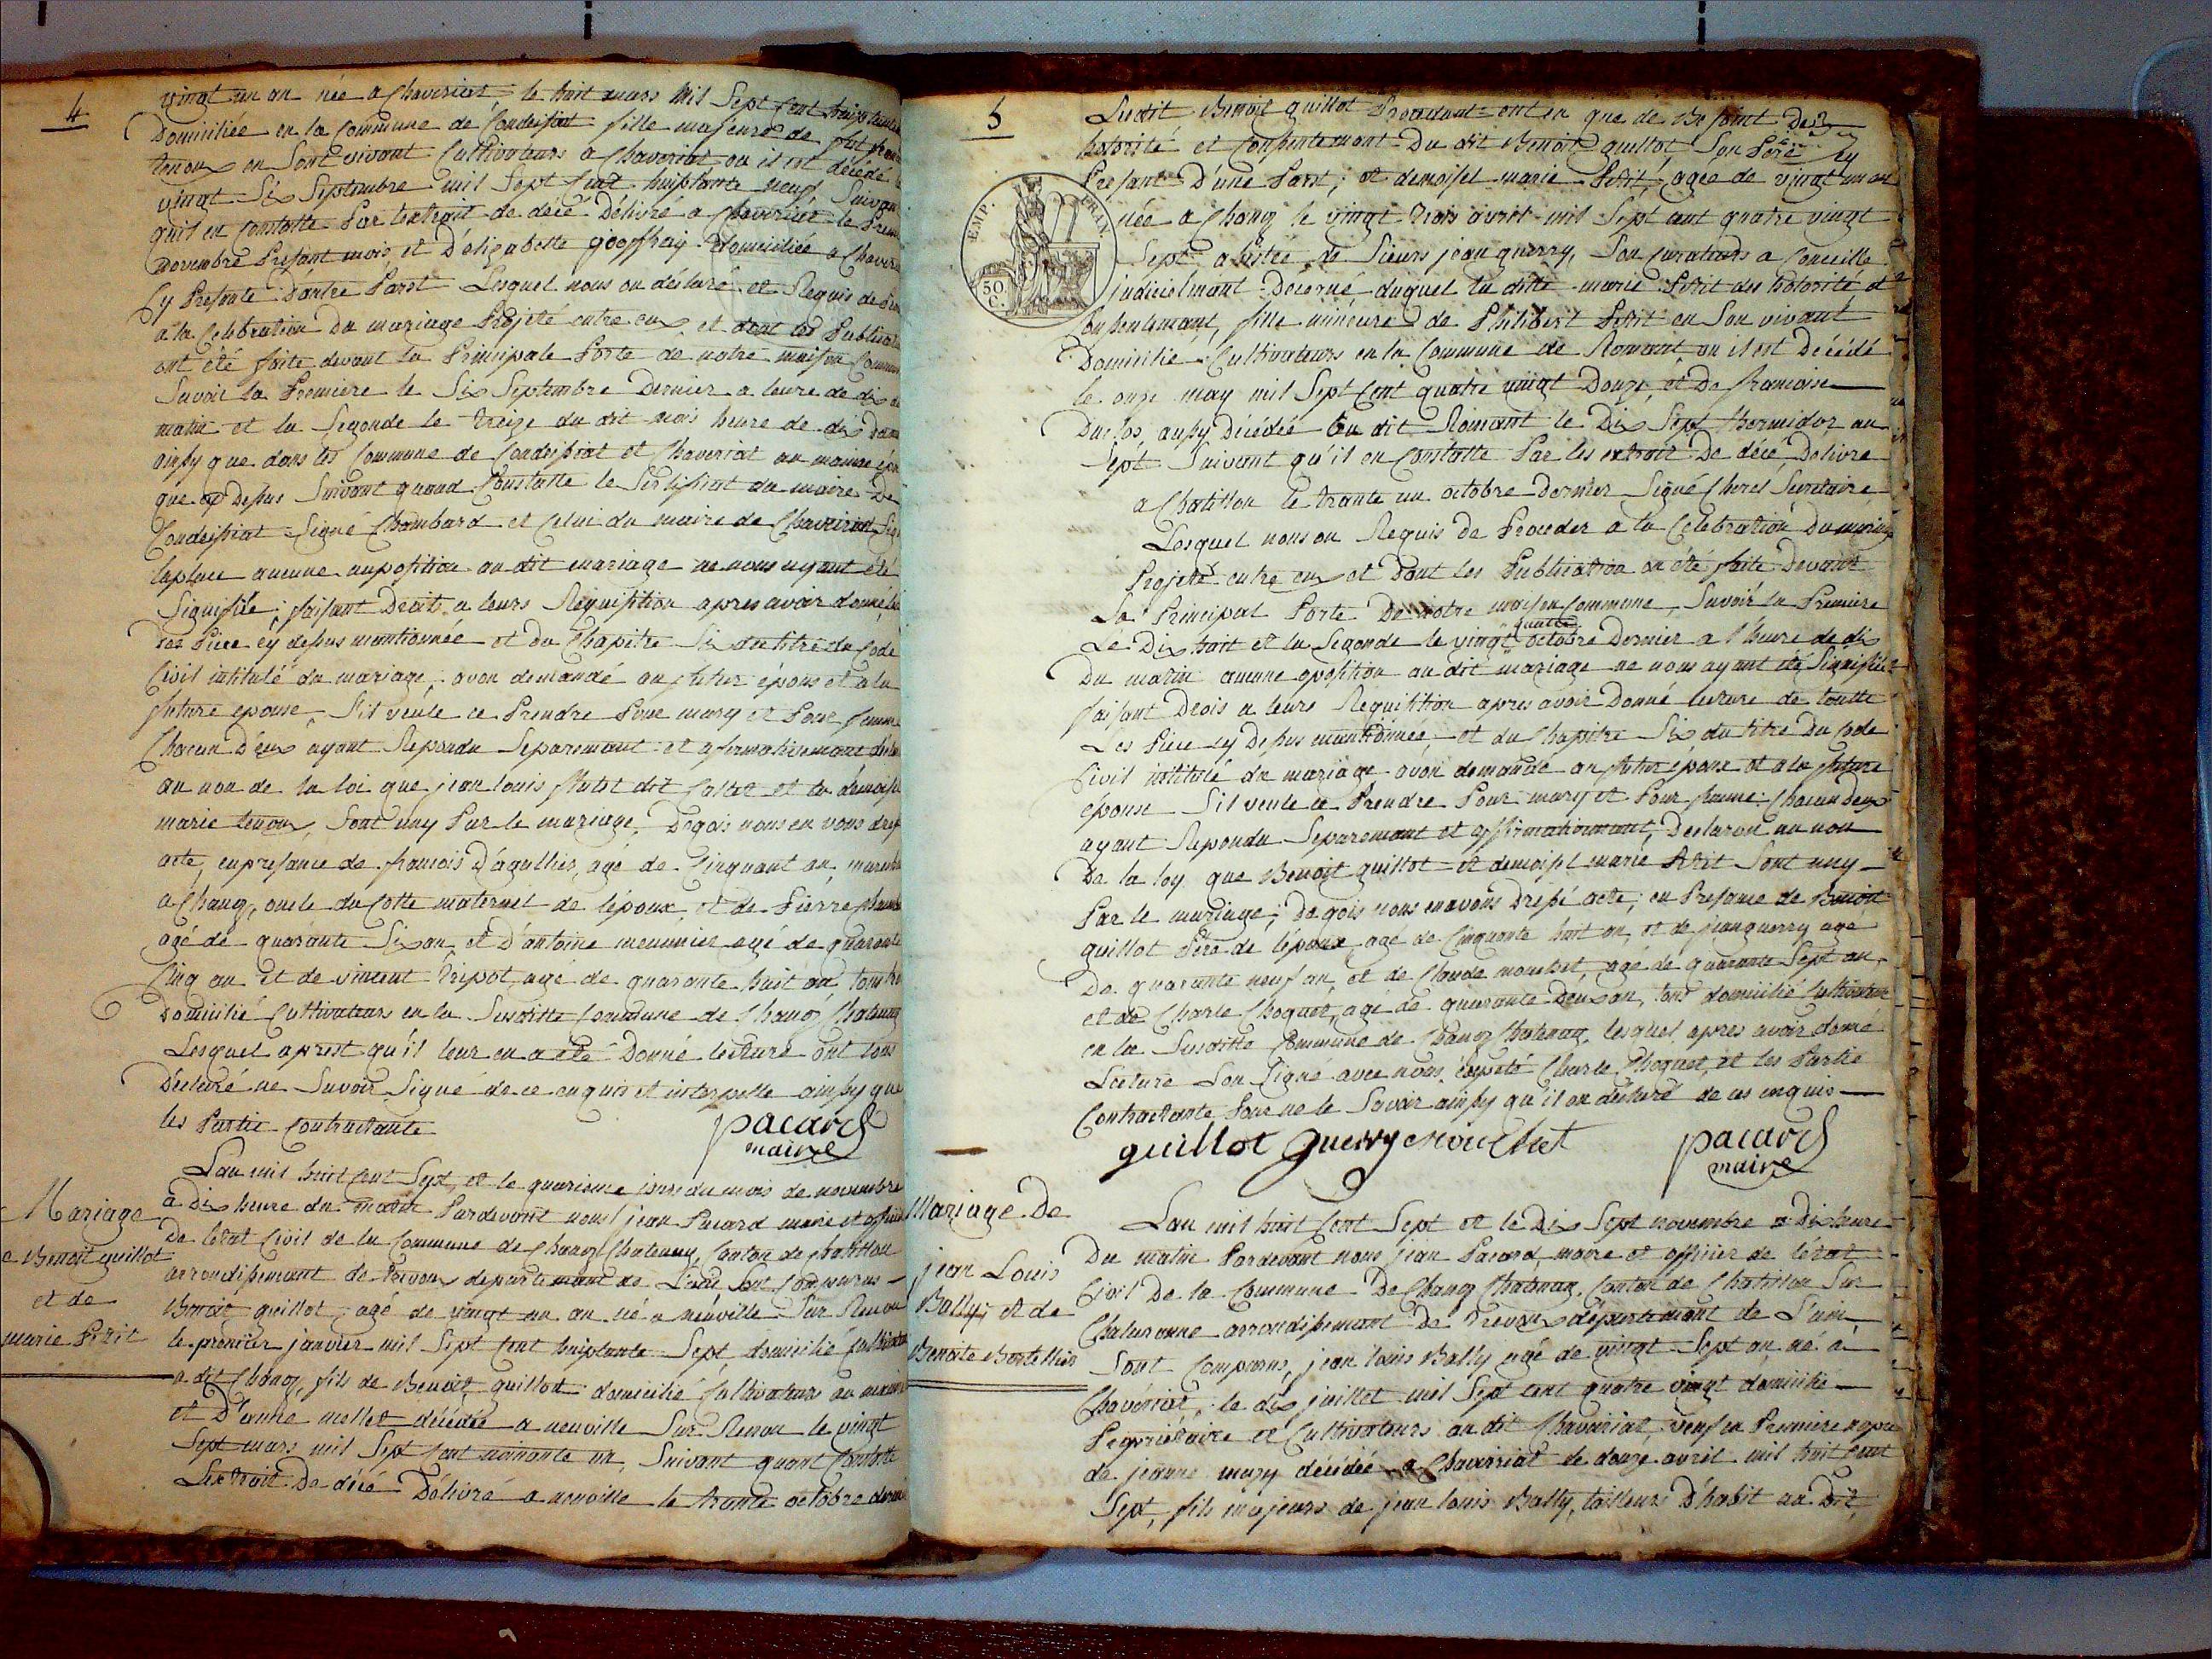 4
vingt un an née a Chaveriat, le huit mars mil Sept Cent
Domiciliée en la Commune de Condeissiat fille majeure de
tenoux en Sont vivant Cultivateurs a Chaveriat ou il est décédé
vingt Six Septembre mil Sept Cent huiptante neuf Suivan
quil en Constatte Par lextrait de décé Délivré a Chaveriat le Prem
novembre Present mois, et D'elizabette geoffray Domiciliée a Chaver
Cy Presente D'antre Parst Lesquel nous on déclaré et Requis de
a la Celebration du mariage Projeté entre eux et dont les Publicat
ont été faite devant la Principale Porte de notre maison Commun
Savoir la Premiere le Six Septembre Dernier a leure de dix
matin et la Segonde le treize du dit mois heure de dix
ainsy que dans les Commune de Condeissiat et Chaveriat au maime
que cy Dessus Suivant quand Constatte le Sertificat du maire De
Condeissiat Signé Chambard et Celui du maire de Chaveriat
laplace aucune auposition au dit mariage ne nous ayant été
Signifiée; faisant Droit a leurs Requisition apres avoir donné
des Piece cy dessus mantionnée et du Chapitre Six du titre du Code
Civil intitulé du mariage avon demandé au futur épous et a la
future epouse, S'il veule ce Prendre Pour mary et Pour femme
Chacun D'eux ayant Repondu Separemant et afirmativemant
au non de la loi que jean louis dit et la demoisel
marie tenoux, Sont uny Par le mariage, Dequois nous en vons
acte, en presance de francois D'agallier, agé de Cinquant an,
a Chanoz, oncle du Cotte maternel de l'épous et de Pierre
agé de quarante Six an et D'antoine meunnier agé de quarante
Cinq an et de vincent tripot, agé de quarante huit an tous
Domicilié Cultivateurs en la Susditte Commune de Chanoz Chatenay
Lesquel aprest qu'il leur en a été Donné lecture ont tous
Déclaré ne Savoir Signé de ce enquis et interpellé ainsy que
les Partie Contractante
pacard
maire
Mariage
Benoit guillot
et de
marie Petit
L'an mil huit Cent Sept, et le quinsieme jour du mois de novembre
a Dix heure du matin Pardevant nous jean Pacard maire et officier
De l'état Civil de la Commune de Chanoz Chatenay Canton de Chatillon
arrondissemant de trevoux departemant de L'ain, Sont Comparus
Benoit guillot, agé de vingt un an né a neuville Sur Renon
le premier janvier mil Sept Cent huiptante Sept, domicilié Cultivateur
a dit Chanoz, fils de Benoit guillot domicilié Cultivateurs au
et D'anne mollet décédée a neuville Sur Renon le vingt
Sept mars mil Sept Cent nonante un, Suivant quant Constatte
L'extrait De décé Délivré a neuville le trante octobre dernier
5
Ledit Benoit guillot Procedant ont en que de Besoint De
hotorité et Consentemant Du dit Benoit guillot, Son Pere Cy
Present D'une Parst, et demoisel marie Petit, agée de vingt un an
née a Chanoz le vingt trois avril mil Sept cent quatre vingt
Sept, asistée de Sieurs jean guerry, Son Curateurs a Conceille
judicielmant Décerné duquel la ditte marie Petit hotorité et
Consentemant, fille mineure de Philibert Petit en Son vivant
Domicilié Cultivateurs en la Commune de Romant ou il est Décédé
le onze may mil Sept Cent quatre vingt Douze, et De francoise
Duclos, aussy Décédée au dit Romant le Dix Sept thermidor an
Sept Suivant qu'il en Constatte Par les extrait De décé Délivré
a Chatillon le trante un octobre Dernier Signé Cherel Secretaire
Lesquel nous on Requis De Proceder a la Celebration Du mariage
Projeté entre eux et Dont les Publication on été faite Devant
La Principal Porte De notre maison Commune, Savoir la Premiere
Le Dix huit et la Segonde le vingt quatre octobre Dernier a l'heure de dix
Du matin aucune oposition au dit mariage ne nous ayant été Signifiée
faisant Drois a leurs Requisition apres avoir Donné lecture de toutte
Les Piece cy Dessus mantionnée, et du Chapitre Six du titre Du Code
Civil intitulé du mariage avon demandé au futur épouse et a la future
épouse S'il veule ce Prendre Pour mary et Pour famme Chacun Deux
ayant Repondu Separemant et affirmativemant, Declaron au non
De la loy que Benoit guillot et demoisel marie Petit Sont uny
Par le mariage; De qois nous en avons Dressé acte, en Presance de Benoit
guillot Pere de l'épouse agé de Cinquante huit an, et de jean guerry agé
De quarante neuf an, et de Claude mouchet, agé de quarante Sept an,
et de Charle Choquet, agé de quarante Deux an, tous domicilié Cultivateur
en la Susditte Commune de Chanoz Chatenay, lesquel apres avoir donné
Lecture Son Signé avec nous, éxpeté Charle Choquet, et les Partie
Contractante Pour ne le Savoir ainsy qu'il on déclaré de ces enquis
guillot guerry Mouchet pacard
maire
Mariage De
jean Louis
Bally, et de
Benoite Bertellier
L'an mil huit Cent Sept et le Dix Sept novembre a Dix heure
Du matin Pardevant nous jean Pacard, maire et officier de l'état
Civil De la Commune De Chanoz Chatenay, Canton de Chatillon Sur
Chalaronne arrondissemant De Trevoux departemant de L'ain
Sont Comparus, jean louis Bally agé de vingt Sept an né a
Chaveriat, le dix juillet mil Sept cent quatre vingt domicilié
Propriétaire et Cultivateurs au dit Chaveriat, veuf en Premiere
de jeanne mary décédée a Chaveriat le douze avril mil huit Cent
Sept, fils majeurs de jean louis Bally, tailleurs D'habit au Dit
EMP. FRAN.
50
C.